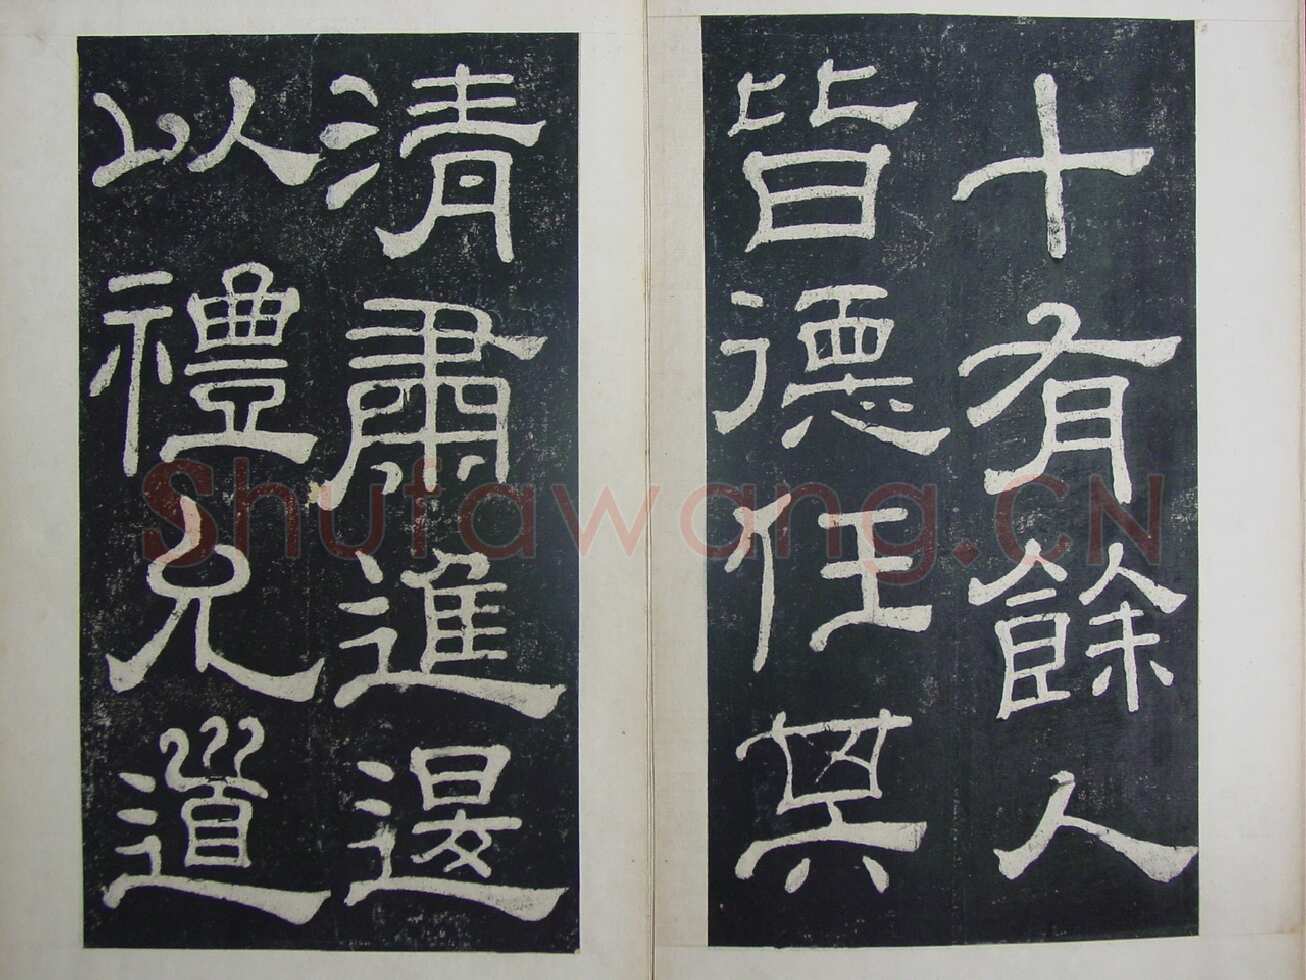 十有餘人
皆德任其
清肅進退
以禮允道
Shufawang.CN